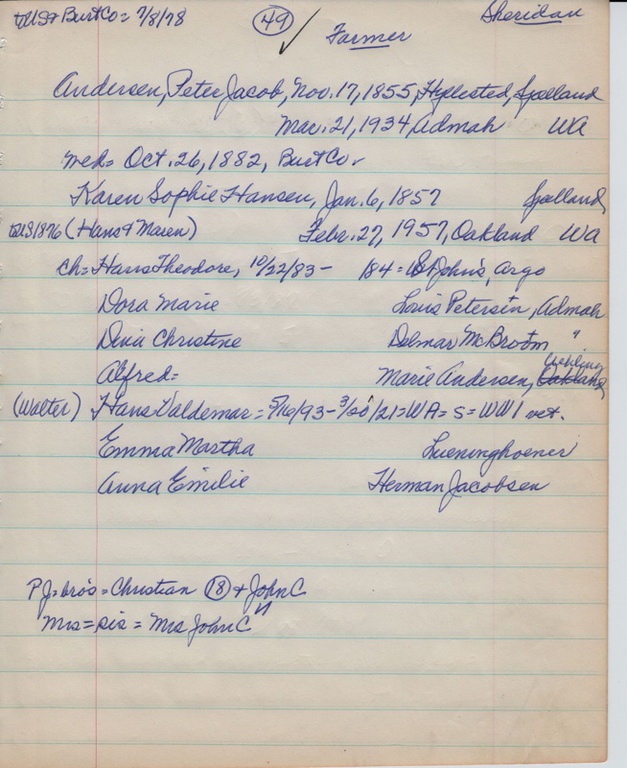 toUS+BurtCo= 7/8/78 (49) ✓ Sheridan
Farmer
Andersen, Peter Jacob, Nov. 17, 1855, Hyllested, Sjælland
Mar. 21, 1934 Admah WA
wed= Oct. 26, 1882, BurtCo.
Karen Sophie Hansen, Jan. 6, 1857 Sjælland
toUS1876 (Hans & Maren) Febr. 27, 1957, Oakland WA
ch= Hans Theodore, 10/22/83 – /84 = St John's, Argo
Dora Marie Louis Petersen, Admah
Christine Delmar McBroom "
Alfred= Marie Andersen, Uehling Oakland
(Walter) Hans Valdemar = 5/16/93 – /21 = WA = S = WW I vet.
Emma Martha Lueninghoener
Anna Emilie Herman Jacobsen
PJ=bro's = Christian (18) + John C
Mrs=sis = Mrs John C "